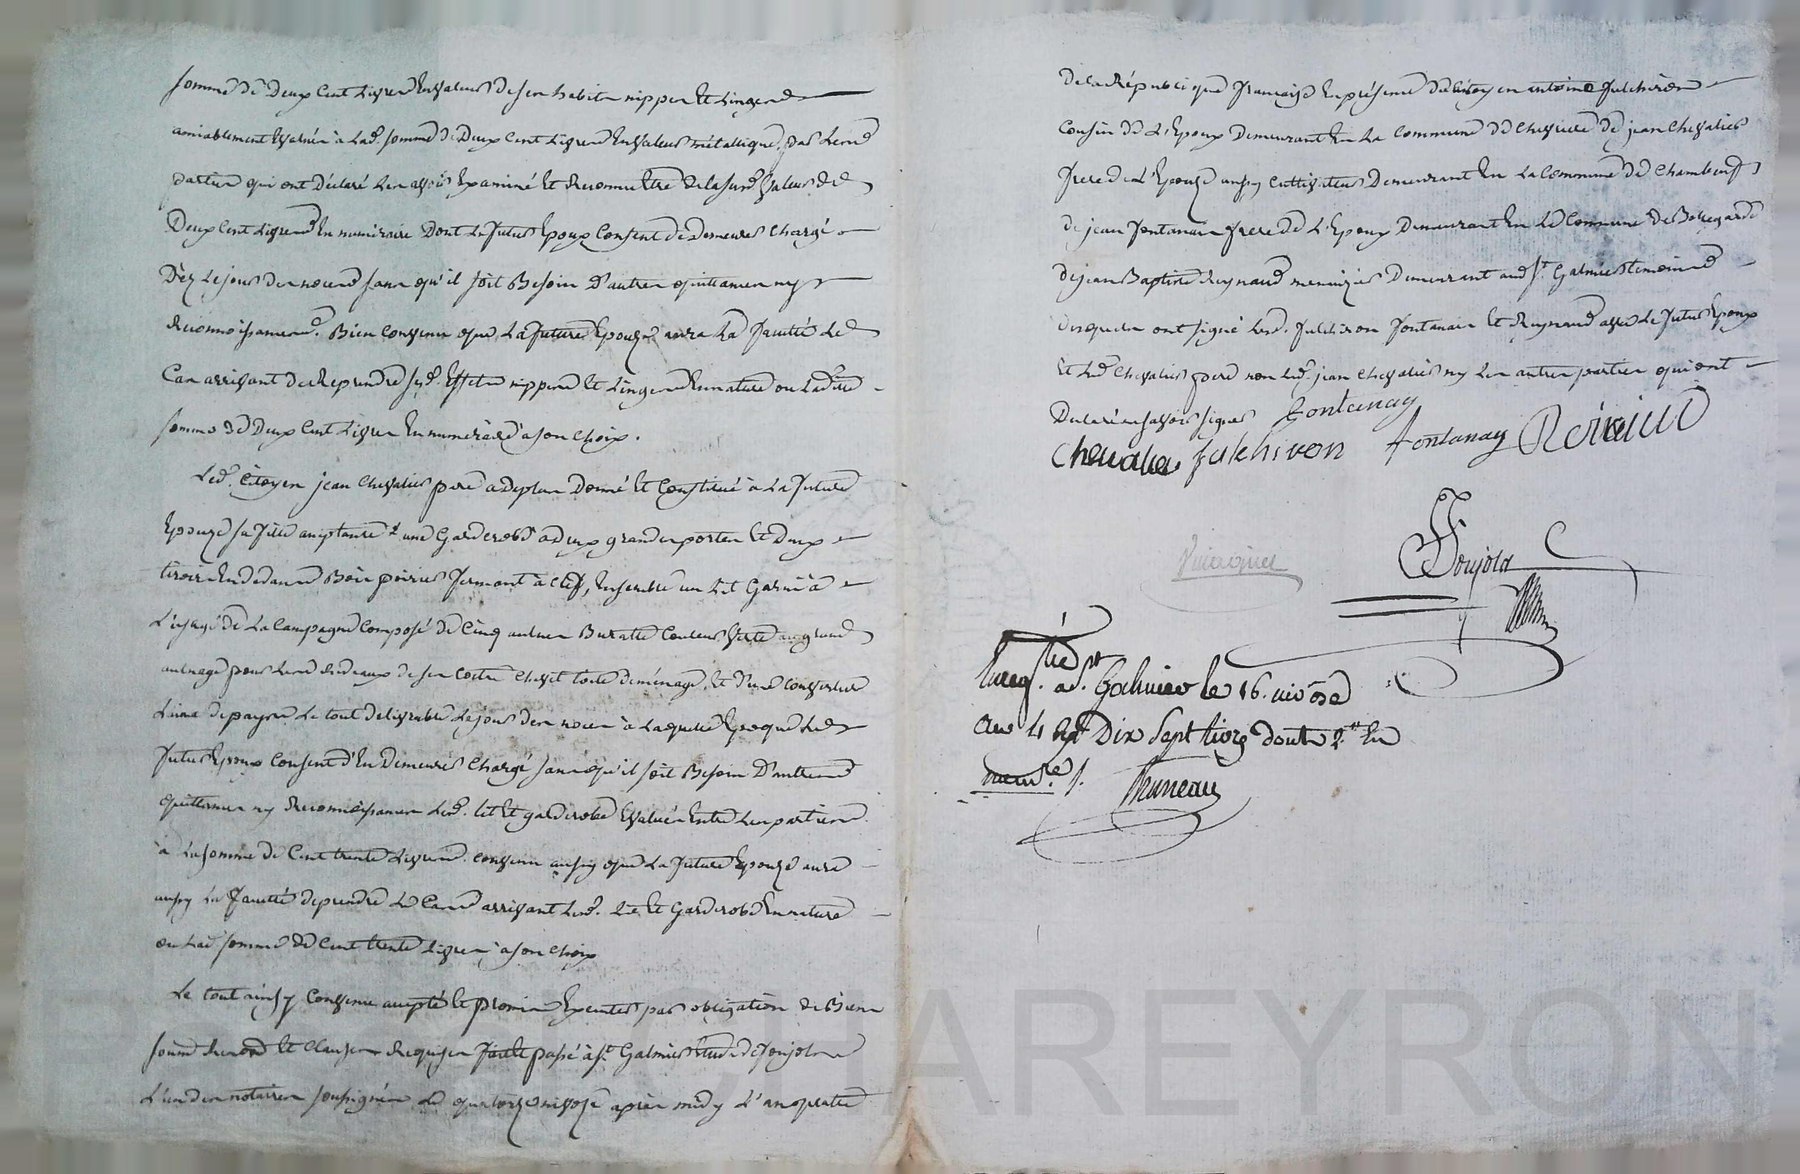 somme de Deux Cent Livres En valeur de ses habits nippes et Linges
amiablement Evalués à lad. somme de Deux Cent Livres En valeur métallique par Lesd
parties qui ont Déclaré Les avoir Examiné et Reconnu Etre de la susd valeur de
Deux Cent Livres En numéraire Dont Le futur Epoux Consent de Demeurer Chargé
Dèz Le jour des noces sans qu'il soit Besoin D'autres quittances ny
Reconnoissances. Bien Convenu que La future Epouze aura La faculté Le
Cas arrivant de Reprendre sesd. Effets nippes et Linges En nature ou Lad.
somme de Deux Cent Livres En numéraire à son Choix.
Led. Citoyen jean Chevalier pere a de plus Donné et Constitué à La future
Epouze sa fille une Garderobe a deux grandes portes et Deux
tiroirs En dedans Bois poirier fermant à Clef, Ensemble un Lit Garni à
L'usage de La Campagne Composé de Cinq aulnes Buratte Couleur Verte au grand
aulnage pour Les Rideaux de son toile de ménage, et D'une Couverture
Laine de payis Le tout delivrable Le jour des noces à Laquelle Epoque Led
futur Epoux Consent d'En Demeurer Chargé sans qu'il soit Besoin D'autres
quittances ny Reconnoissances Lesd. lit et garderobe Evalués Entre Les parties
à La somme de Cent trente Livres. Convenu aussy que La future Epouze aura
aussy La faculté de prendre Le Cas arrivant Lesd. Lit et Garderobe En nature
ou Lad somme de Cent trente Livres à son Choix
Le tout ainsy Convenu accepté et promis Executer par obligation de Biens
soumd Renond et Clauses Requises fait et passé à St. Galmier Etude de Poujols
L'un des notaires soussignés Le quatorze nivose après midy L'an quatre
de La République française En présence du Citoyen antoine fulchiron
Cousin de L'Epoux Demeurant En La Commune de Chevrières de jean Chevalier
frere de L'Epouze aussy Cultivateur Demeurant En La Commune de Chambeuf
de jean fontanay frere de L'Epoux Demeurant En La Commune de Bellegarde
de jean Baptiste Reynaud menuizier Demeurant aud St. Galmier temoins
Lesquels ont signé Lesd. fulchiron fontanay et Reynaud avec Le futur Epoux
et Led Chevalier pere non Led. jean Chevalier ny Les autres parties qui ont
Déclaré ne savoir signer Fontanay
Chevalier fulchiron fontanay Reinaud
Poujols
Enreg. a St. Galmier le 16. nivose
an 4 Dix Sept livres dont En
num.re
Bruneau
CHAREYRON